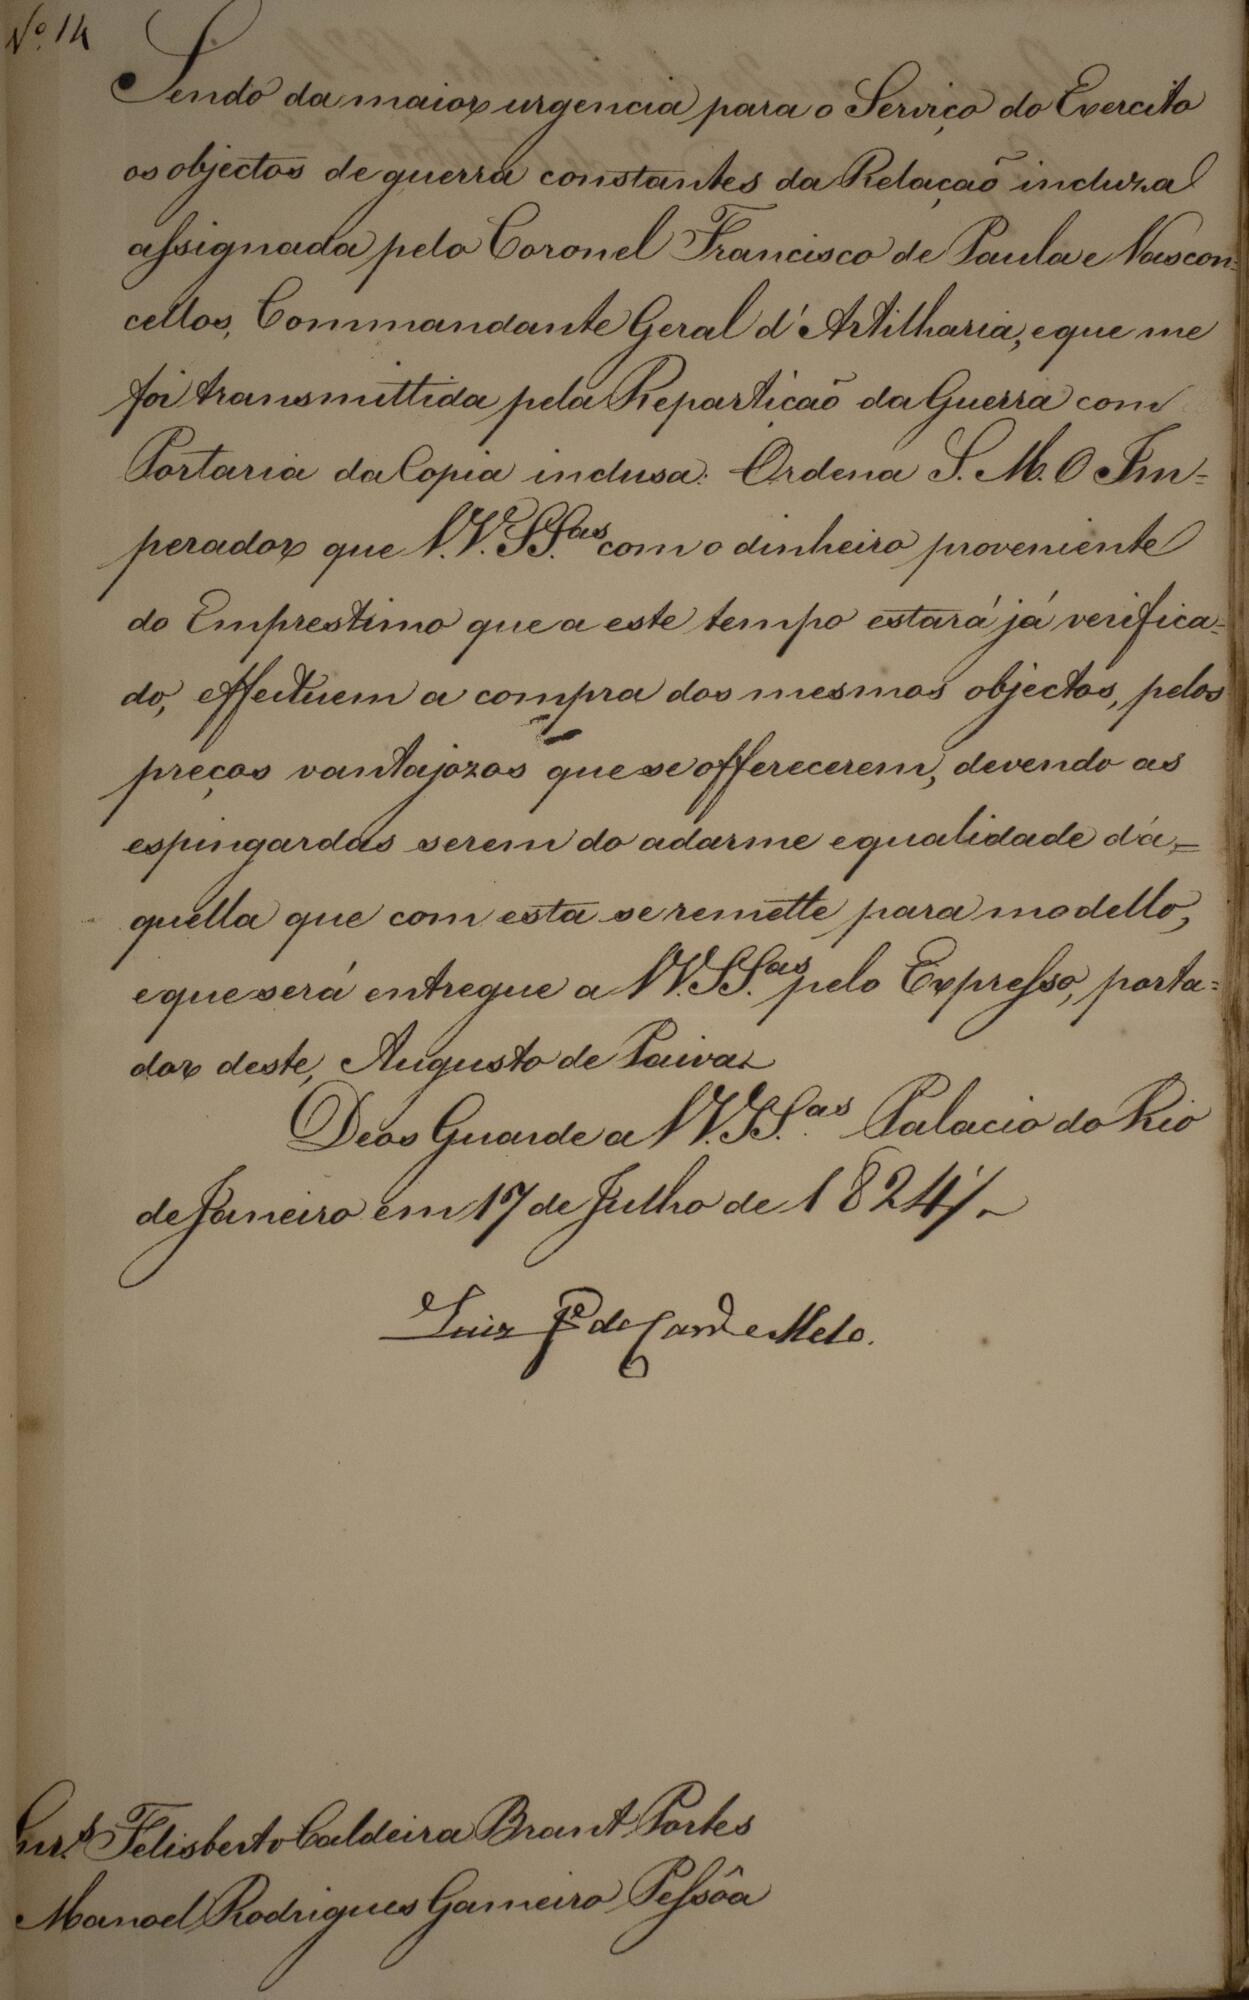 Nº. 14
Sendo da maior urgencia para o Serviço do Exercito
os objectos de guerra constantes da Relação incluza
assignada pelo Coronel Francisco de Paula e Vascon=
cellos, Commandante Geral d'Artilharia, e que me
foi transmittida pela Repartição da Guerra com
Portaria da Copia inclusa: Ordena S. M. O Im=
perador que V.V. SS.as com o dinheiro proveniente
do Emprestimo que a este tempo estará já verifica=
do, effectuem a compra dos mesmos objectos, pelos
preços vantajozos que se offerecerem, devendo as
espingardas serem do adarme e qualidade dá=
quella que com esta se remette para modello,
e que será entregue a VV. SS.as pelo Expresso, porta=
dor deste, Augusto de Paiva
Deos Guarde a VV. SS.as Palacio do Rio
de Janeiro em 17 de Julho de 1824/.
Luiz Jé de Carv.º e Mello.
Snr.s Felisberto Caldeira Brant Pontes
Manoel Rodrigues Gameiro Pessôa